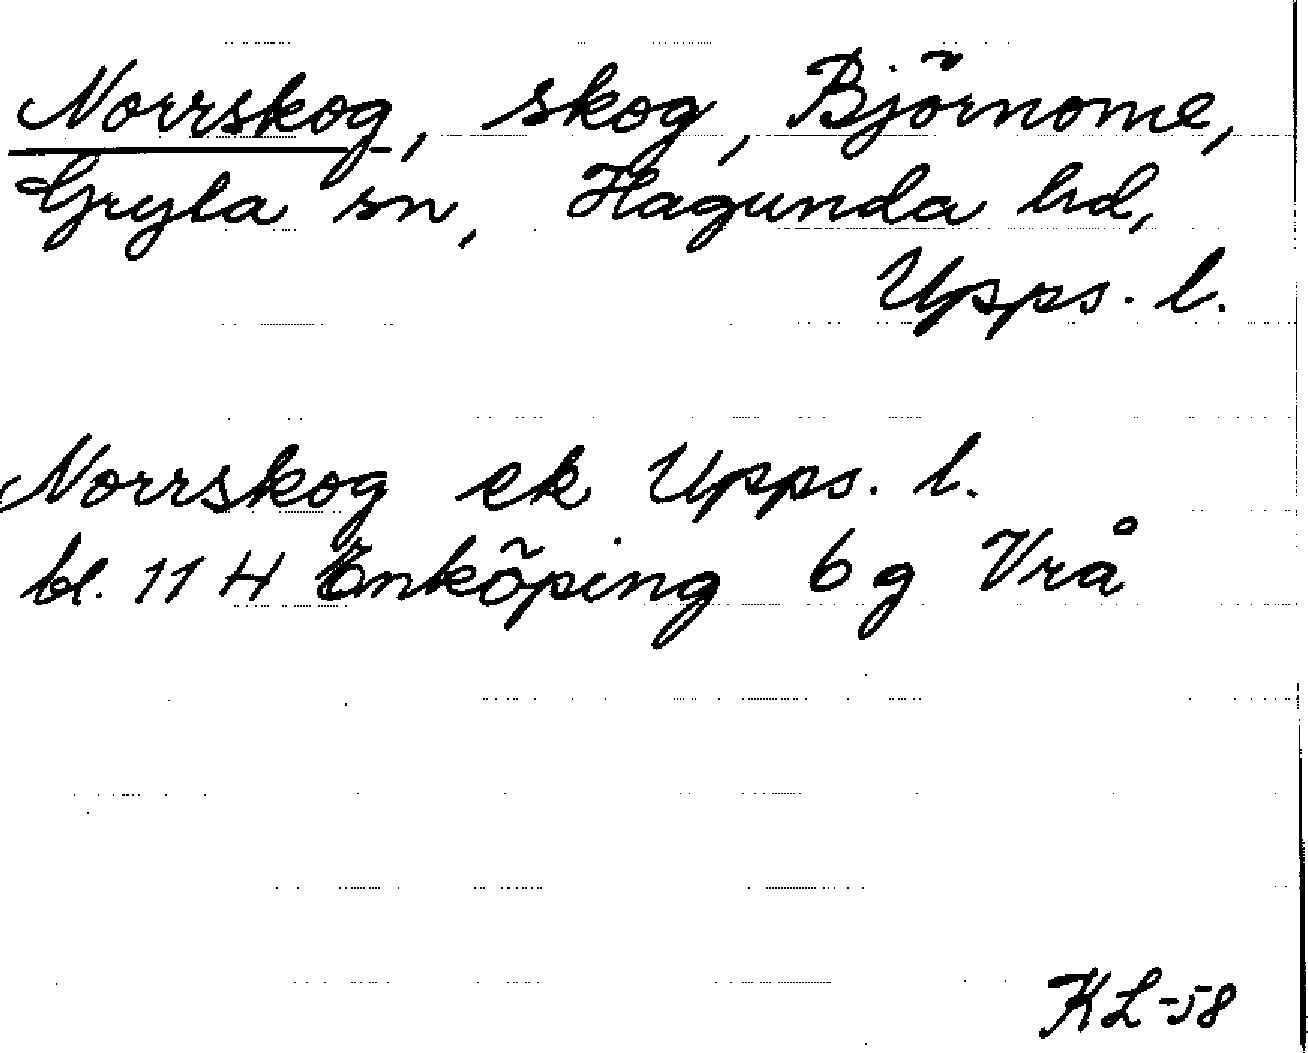 Norrskog, skog, Björnome,
Gryta sn, Hagunda hd,
Upps. l.
Norrskog ek Upps. l.
bl. 11 H Enköping 6 g Vrå
KL-58